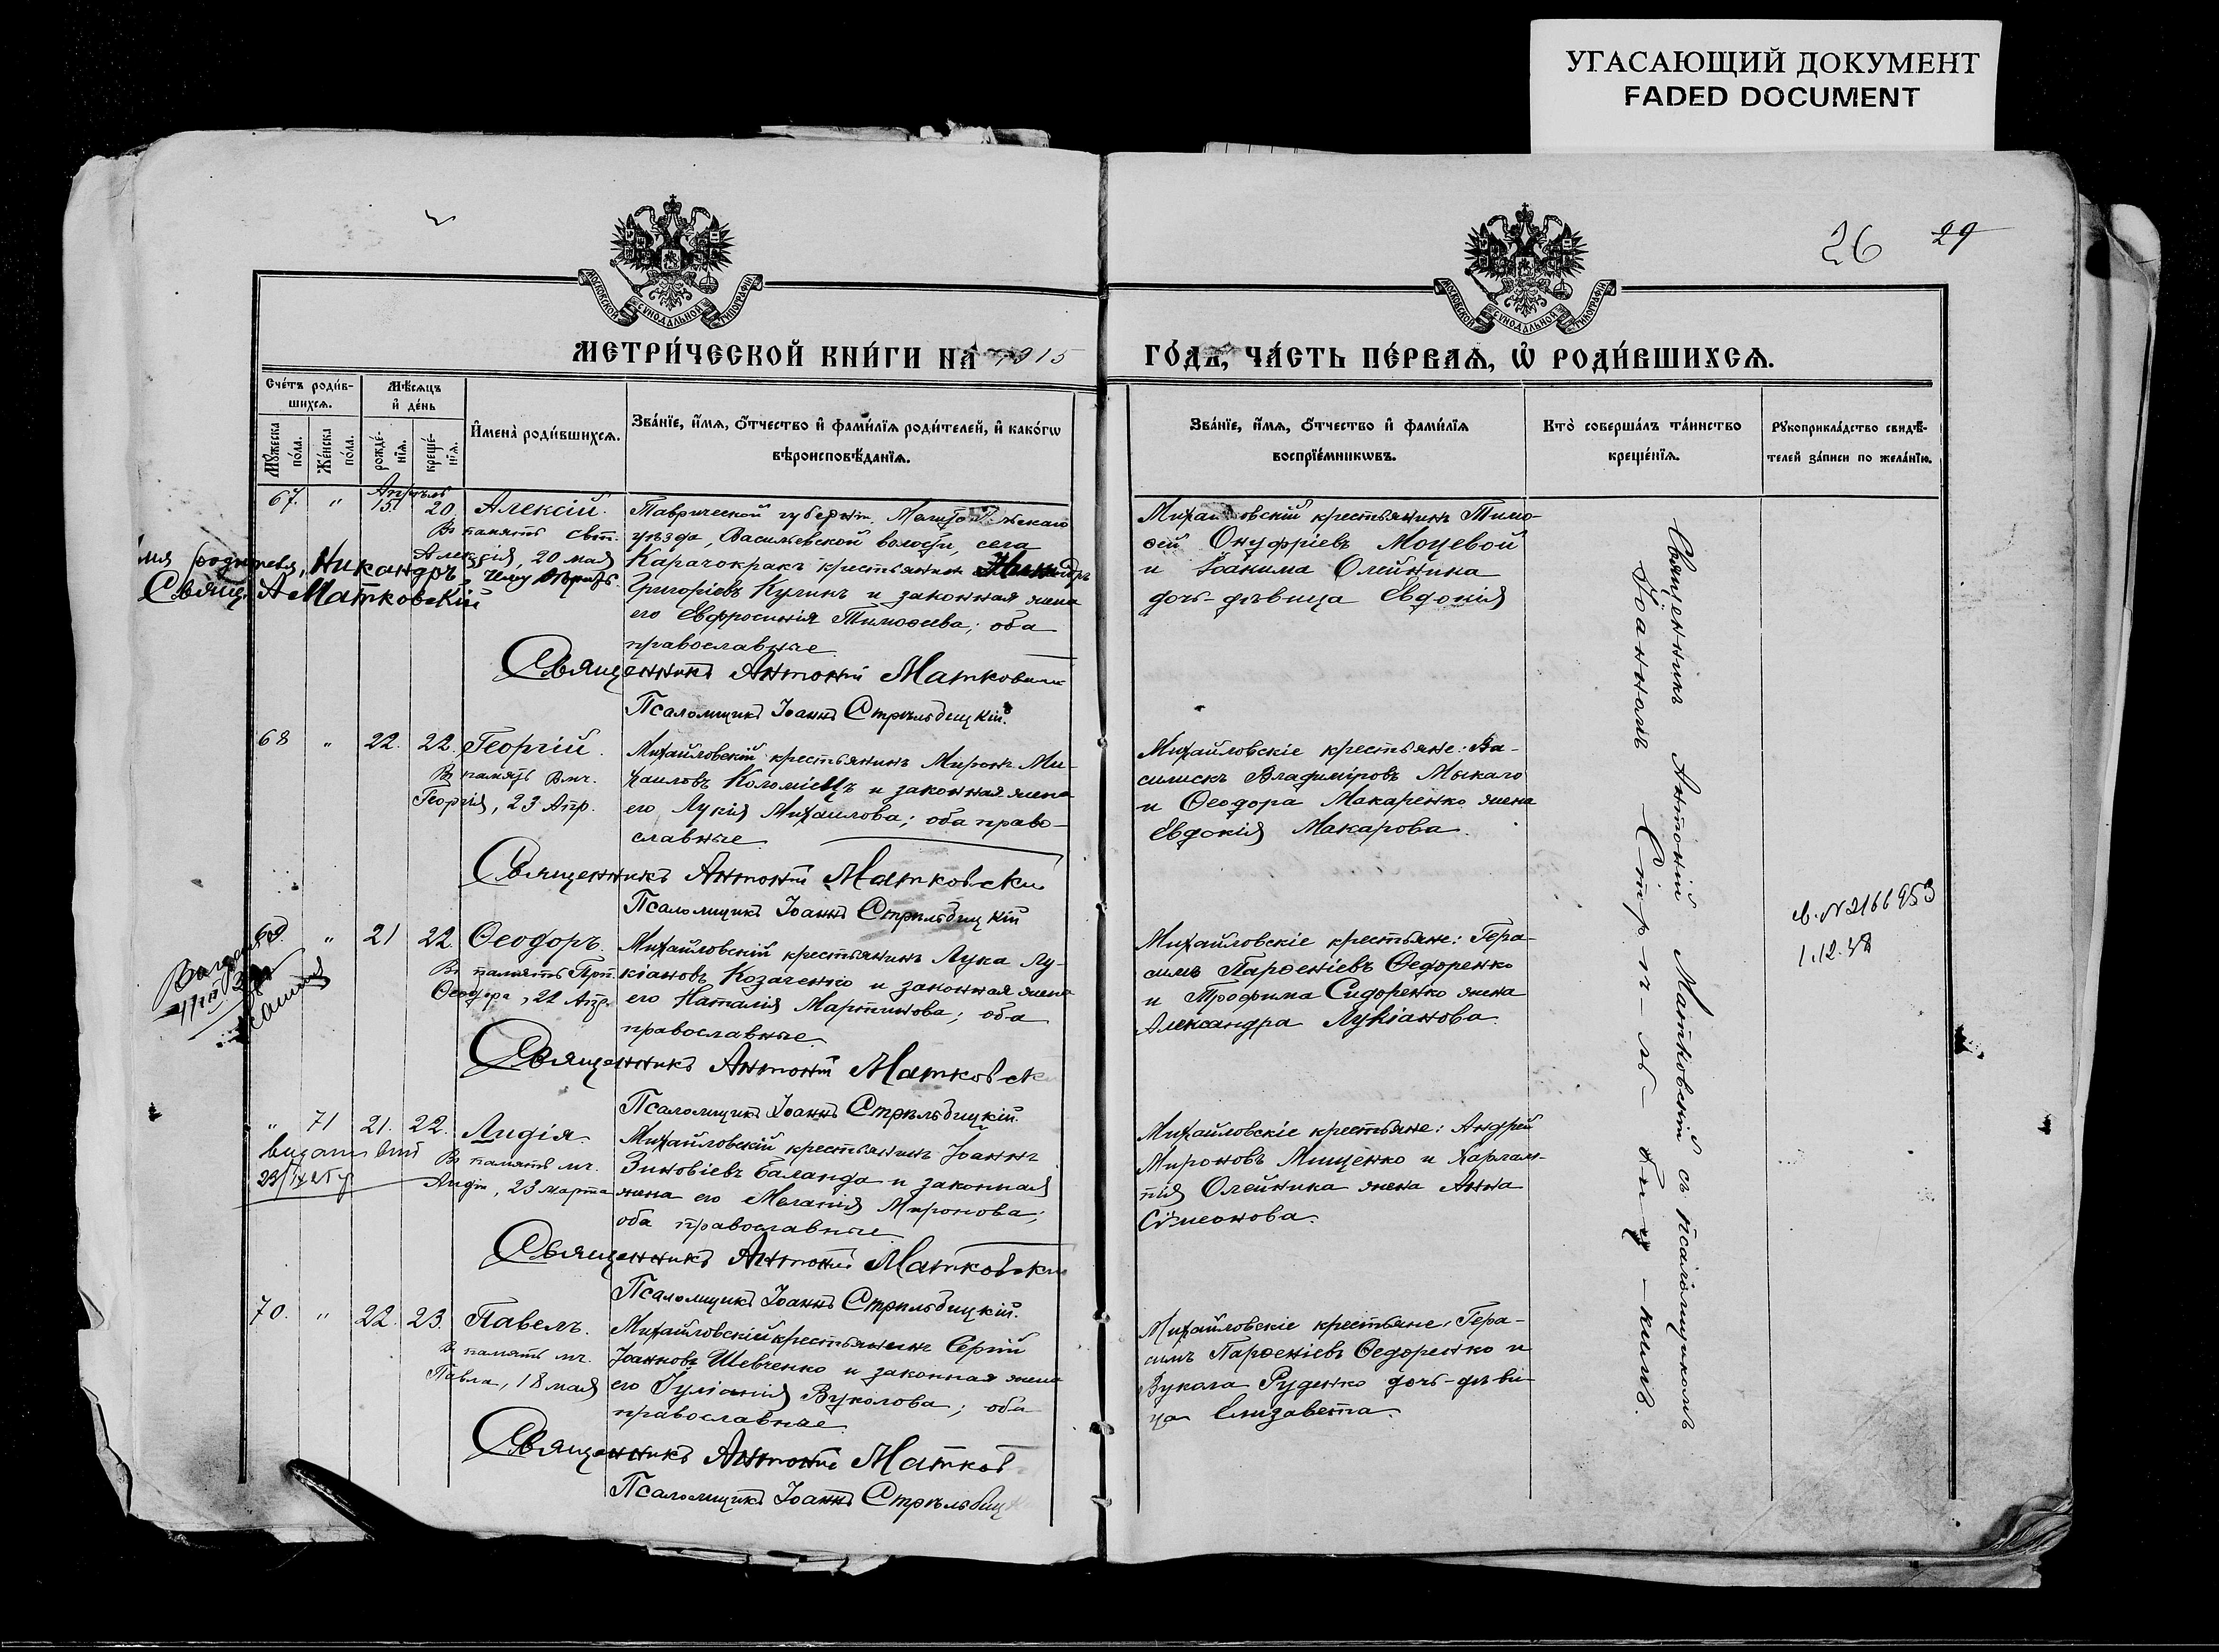 УГАСАЮЩИЙ ДОКУМЕНТ
FADED DOCUMENT
26 29
МОСКОВСКОЙ СѴНОДАЛЬНОЙ ТИПОГРАФІИ
МОСКОВСКОЙ СѴНОДАЛЬНОЙ ТИПОГРАФІИ
МЕТРИ́ЧЕСКОЙ КНИ́ГИ НА 1915
ГО́ДЪ, ЧА́СТЬ ПЕ́РВАѦ, Ѡ РОДИ́ВШИХСѦ.
Сче́тъ роди́в-
шихсѧ.
Мѣсѧцъ
и де́нь
Мꙋжеска по́ла.
Же́нска по́ла.
рожде́-
нїѧ.
креще́-
нїѧ.
Имена̀ роди́вшихсѧ.
Зва́нїе, и́мѧ, ѻ́тчество и фами́лїѧ роди́телей, и како́гѡ
вѣроисповѣ́данїѧ.
Зва́нїе, и́мѧ, ѻ́тчество и фами́лїѧ
воспрїе́мникѡвъ.
Кто̀ соверша́лъ та́инство
креще́нїѧ.
Рꙋкоприкла́дство свидѣ́-
телей за́писи по жела́нїю.
67. " Апрѣль
15 20 Алексій.
Въ память свт.
Алексія, 20 мая
имя родителя, Никандръ, чему вѣрить.
Свящ. А Матковскій
Таврической губерніи, Мелитопольскаго
уѣзда, Васильевской волости, села
Карачокракъ крестьянинъ Никандръ
Григоріевъ Кулинъ и законная жена
его Евфросинія Тимоѳеева; оба
православные
Священникъ Антоній Матковскій
Псаломщикъ Іоаннъ Стрѣльбицкій.
Михайловскій крестьянинъ Тимо-
ѳей Онуфріевъ Моцевой
и Іоакима Олейника
дочь-дѣвица Евдокія
68 " 22. 22. Георгій.
Въ память Вмч.
Георгія, 23 Апр.
Михайловскій крестьянинъ Миронъ Ми-
хаиловъ Коломіецъ и законная жена
его Лукія Михаилова; оба право-
славные
Священникъ Антоній Матковскій
Псаломщикъ Іоаннъ Стрѣльбицкій
Михайловскіе крестьяне: Ва-
силискъ Владиміровъ Мыкало
и Ѳеодора Макаренко жена
Евдокія Макарова.
69. " 21 22. Ѳеодоръ.
Въ память Прп.
Ѳеодора, 22 Апр.
Михайловскій крестьянинъ Лука Лу-
кіановъ Козаченко и законная жена
его Наталія Мартинова; оба
православные
Священникъ Антоній Матковск
Псаломщикъ Іоаннъ Стрѣльбицкій.
Михайловскіе крестьяне: Гера-
симъ Парѳеніевъ Ѳедоренко
и Трофима Сидоренко жена
Александра Лукіанова.
в. N 2166953
1.12.48
" 71 21. 22. Лидія.
Въ память мч.
Лидіи, 23 марта
Михайловскій крестьянинъ Іоаннъ
Зиновіевъ Баланда и законная
жена его Меланія Миронова;
оба православные
Священникъ Антоній Матковскі
Псаломщикъ Іоаннъ Стрѣльбицкій.
Михайловскіе крестьяне: Андрей
Мироновъ Мищенко и Харлам-
пія Олейника жена Анна
Сѵмеонова.
70. " 22. 23. Павелъ.
Въ память мч.
Павла, 18 мая
Михайловскій крестьянинъ Сергій
Іоанновъ Шевченко и законная жена
его Іуліанія Вуколова; оба
православные
Священникъ Антоній Матков
Псаломщикъ Іоаннъ Стрѣльбиц
Михайловскіе крестьяне: Гера-
симъ Парѳеніевъ Ѳедоренко и
Вукола Руденко дочь-дѣви-
ца Елизавета.
Священникъ Антоній Матковскій съ псаломщикомъ
Іоанномъ Стрѣ-ль-биц-кимъ.